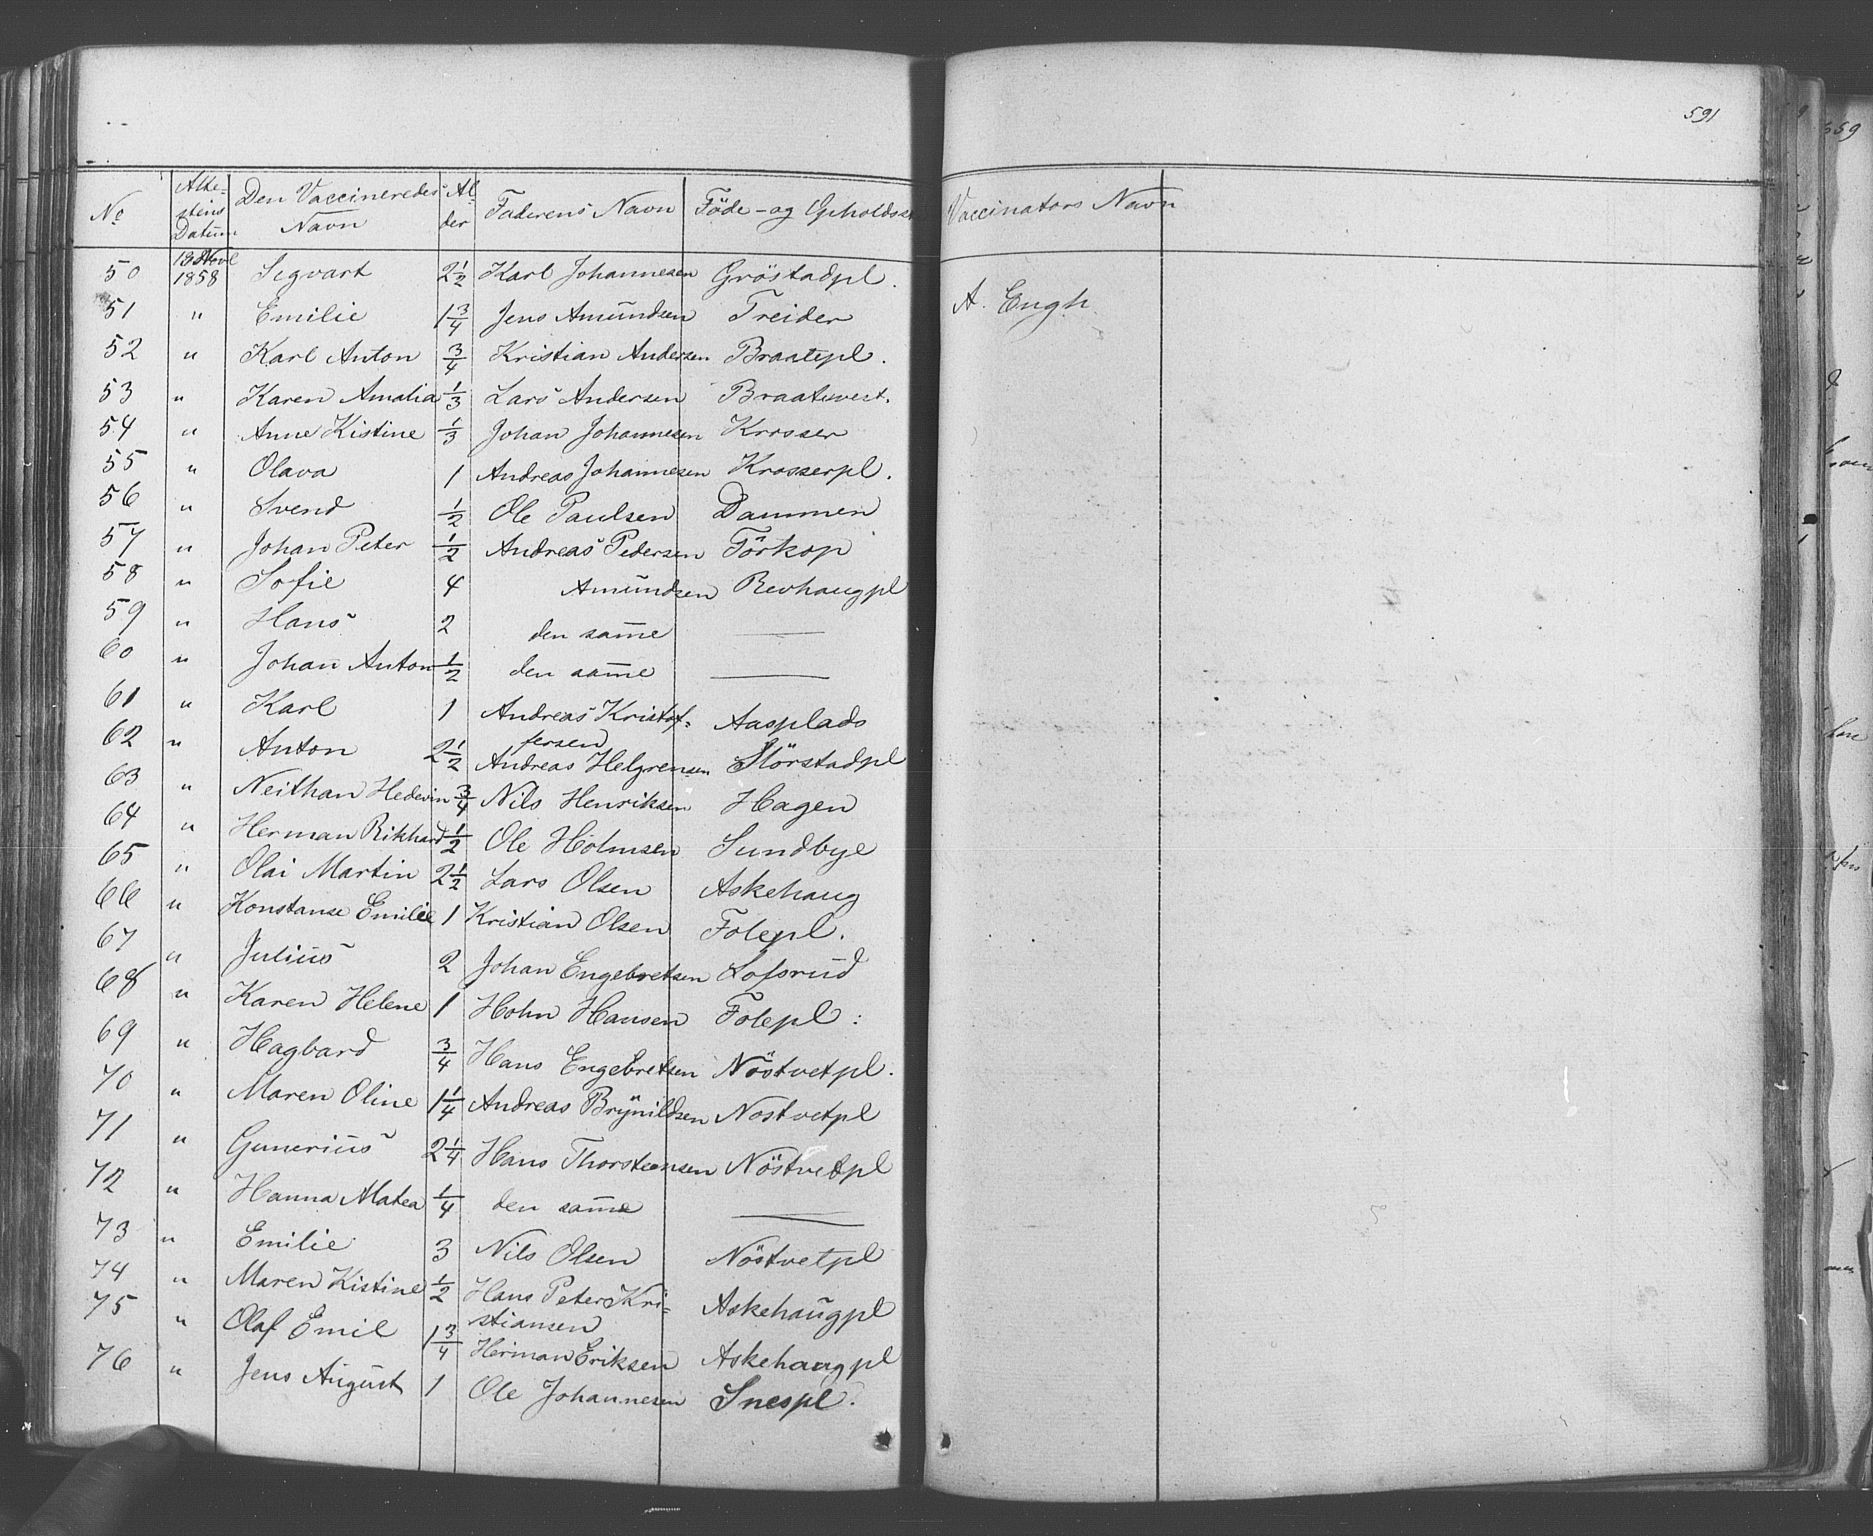 591
No Attestens Datum Den Vaccineredes Navn Alder Faderens Navn Föde - og Opholdsst Vaccinators Navn
50 13 Novb 1858 Sigvart 2 1/2 Karl Johannesen Gröstadpl. A. Engh
51 " Emilie 1 3/4 Jens Amundsen Treider
52 " Karl Anton 3/4 Kristian Andersen Braatepl.
53 " Karen Amalia 1/3 Lars Andersen Braatevest.
54 " Anne Kistine 1/3 Johan Johannesen Krosser
55 " Olava 1 Andreas Johannesen Krosserpl.
56 " Svend 1/2 Ole Paulsen Dammen
57 " Johan Peter 1/2 Andreas Pedersen Förkop
58 " Sofie 4 Amundsen Revhaugpl
59 " Hans 2 den samme —
60 " Johan Anton 1/2 den samme —
61 " Karl 1 Andreas Kristof-
fersen Aasplads
62 " Anton 2 1/2 Andreas Helgrensen Störstadpl
63 " Neithan Hedevin 3/4 Nils Henriksen Hagen
64 " Herman Rikhard 1/2 Ole Holmsen Sundbye
65 " Olai Martin 2 1/2 Lars Olsen Askehaug
66 " Konstanse Emilie 1 Kristian Olsen Folepl.
67 " Julius 2 Johan Engebretsen Lofsrud
68 " Karen Helene 1 Hohn Hansen Folepl:
69 " Hagbard 3/4 Hans Engebretsen Nöstvetpl.
70 " Maren Oline 1 1/4 Andreas Brynildsen Nostvetpl
71 " Gunerius 2 1/4 Hans Thorstensen Nöstvetpl
72 " Hanna Matea 1/4 den samme —
73 " Emilie 3 Nils Olsen Nöstvetpl
74 " Maren Kistine 1/2 Hans Peter Kri-
stiansen Askehaugpl
75 " Olaf Emil 1 3/4 Herman Eriksen Askehaugpl
76 " Jens August 1 Ole Johannesen Snespl.